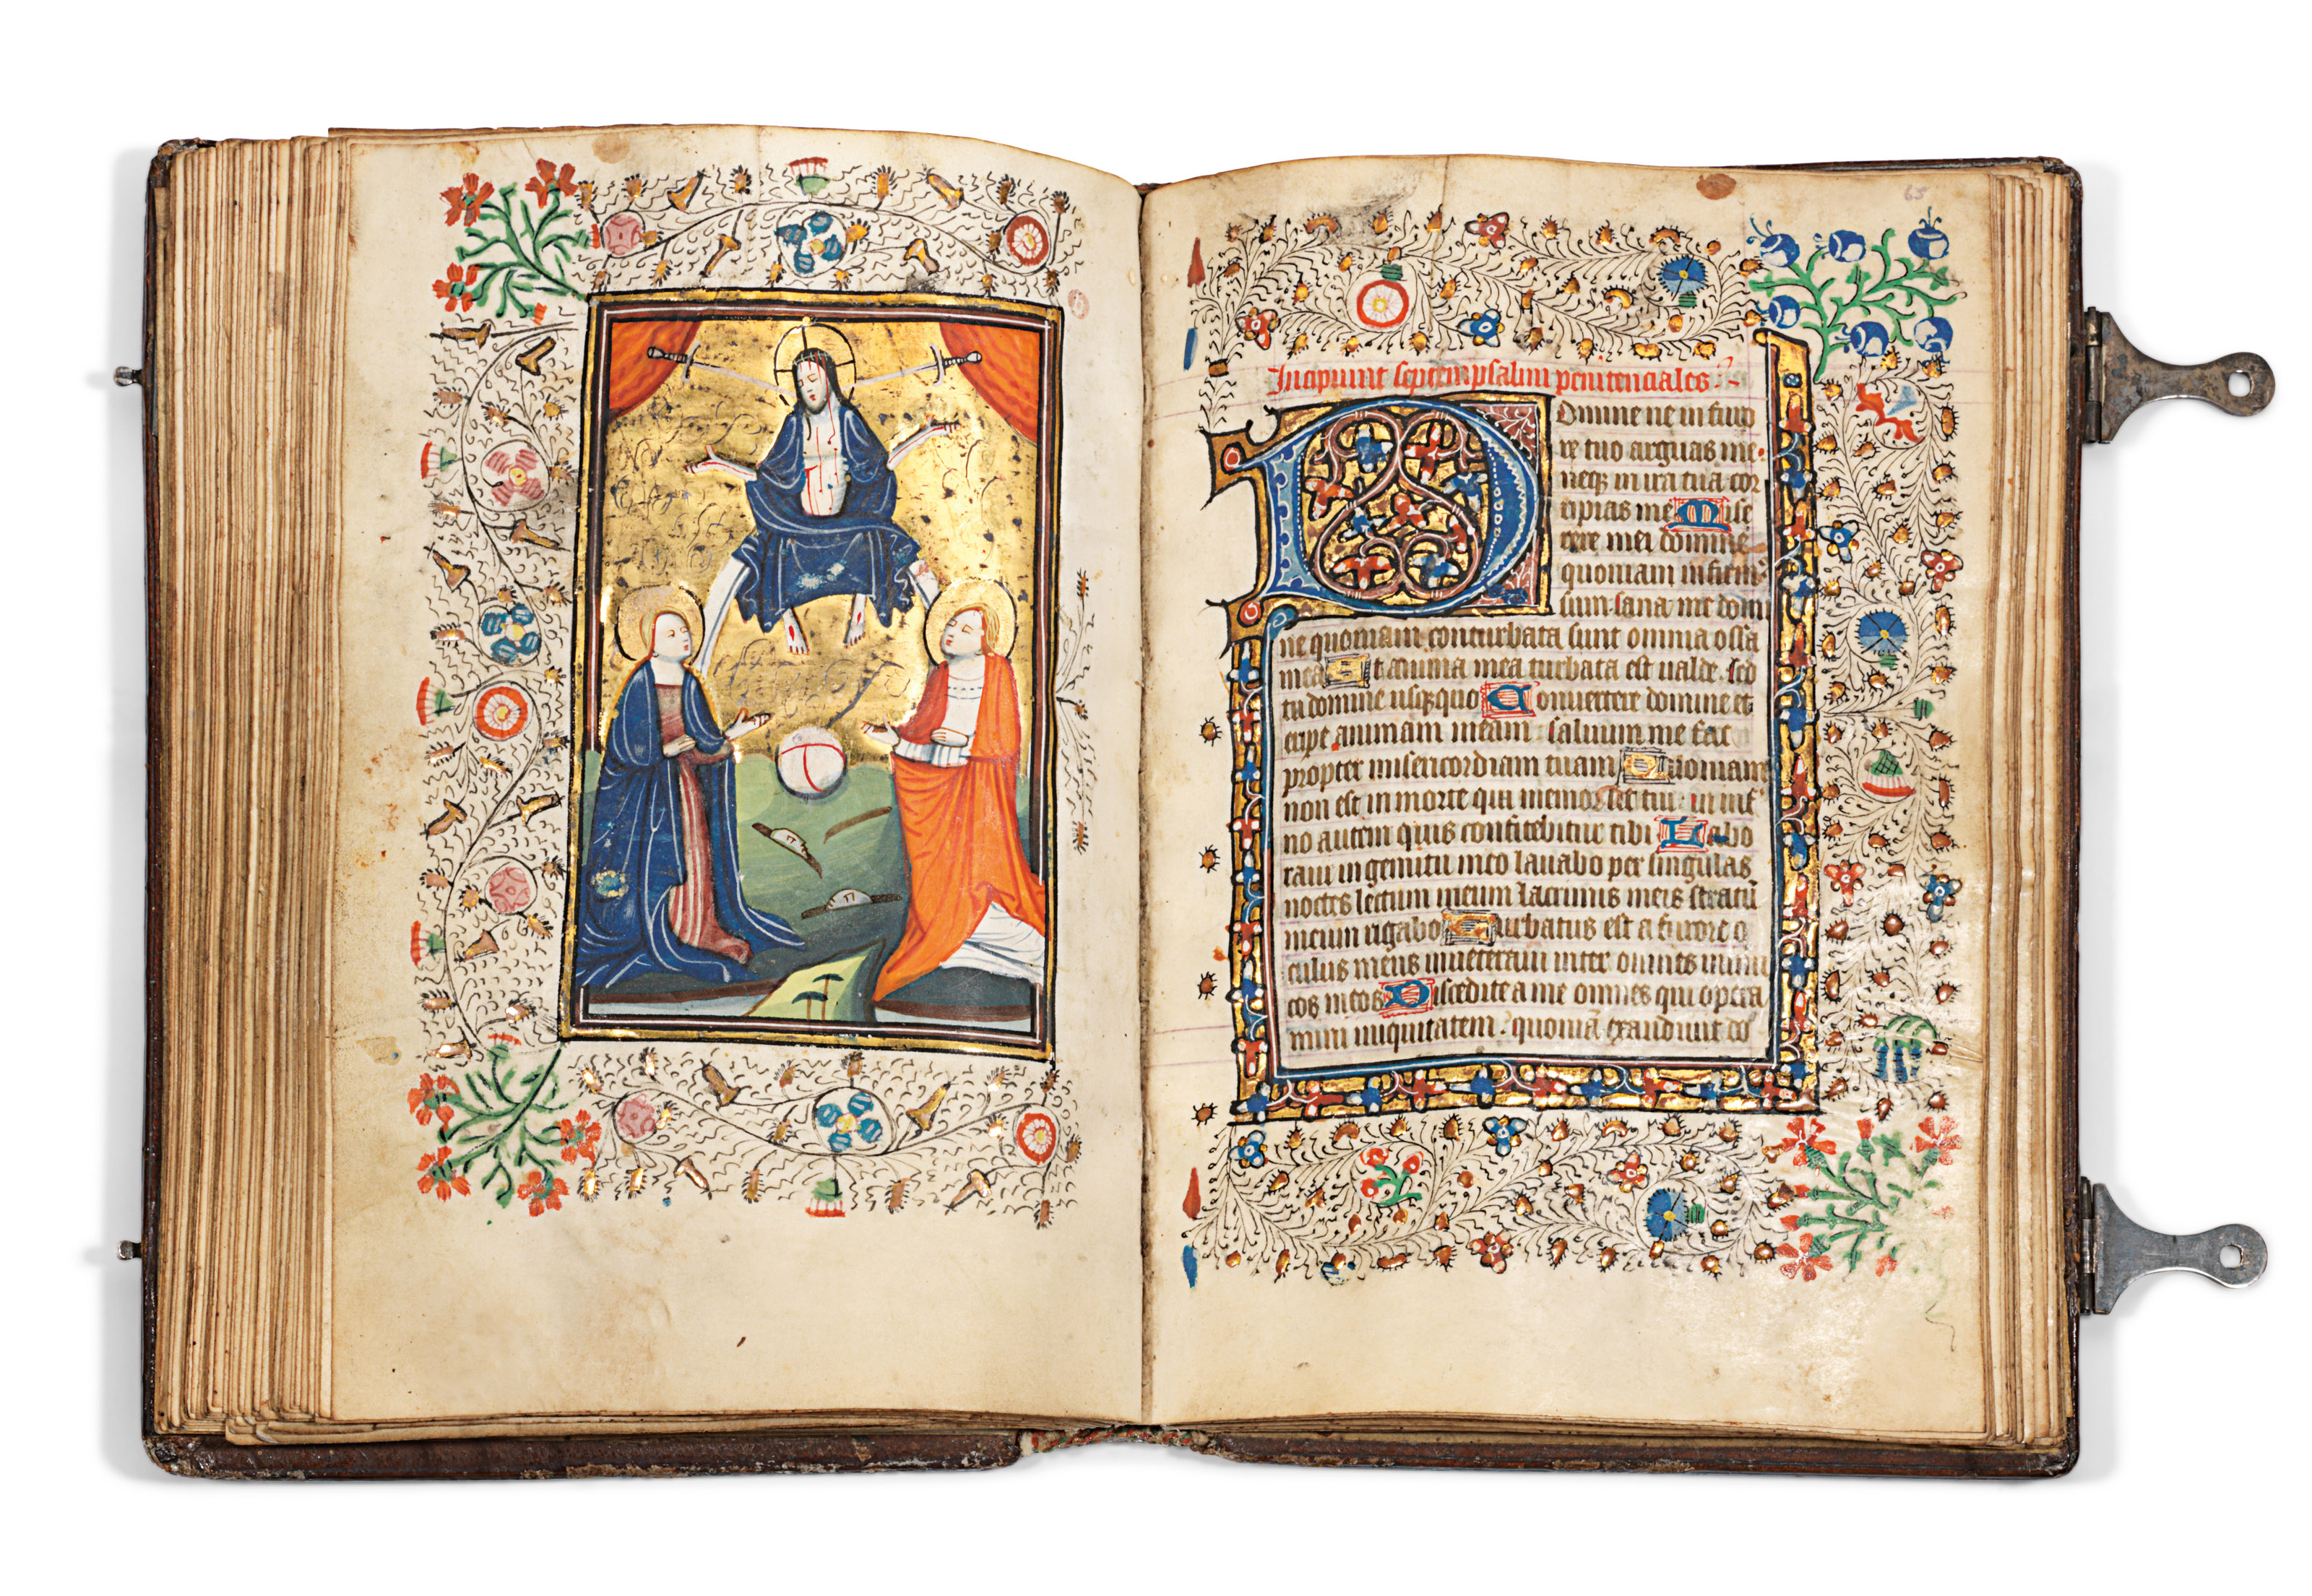 65
Incipiunt septem psalmi penitenciales
Domine ne in furo
re tuo arguas me
neqȝ in ira tua cor
ripias me Mise
rere mei domine
quoniam infirmꝰ
sum sana me domi
ne quoniam conturbata sunt omnia ossa
mea Et anima mea turbata est ualde sed
tu domine usqȝquo Conuertere domine et
eripe animam meam saluum me fac
propter misericordiam tuam Quoniam
non est in morte qui memor sit tui in infer
no autem quis confitebitur tibi Labo
raui in gemitu meo lauabo per singulas
noctes lectum meum lacrimis meis stratū
meum rigabo Turbatus est a furore o
culus meus inueteraui inter omnes inimi
cos meos Discedite a me omnes qui opera
mini iniquitatem quoniā exaudiuit do